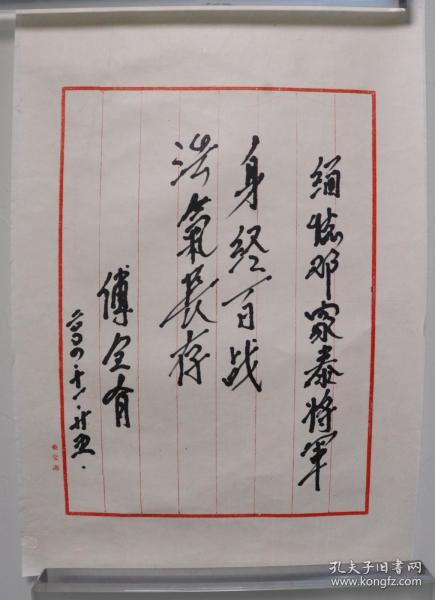 缅怀邓家泰将军
身经百战
浩气长存
傅全有
二〇〇四·十一·廿五·
荣宝斋
孔夫子旧书网
www.kongfz.com